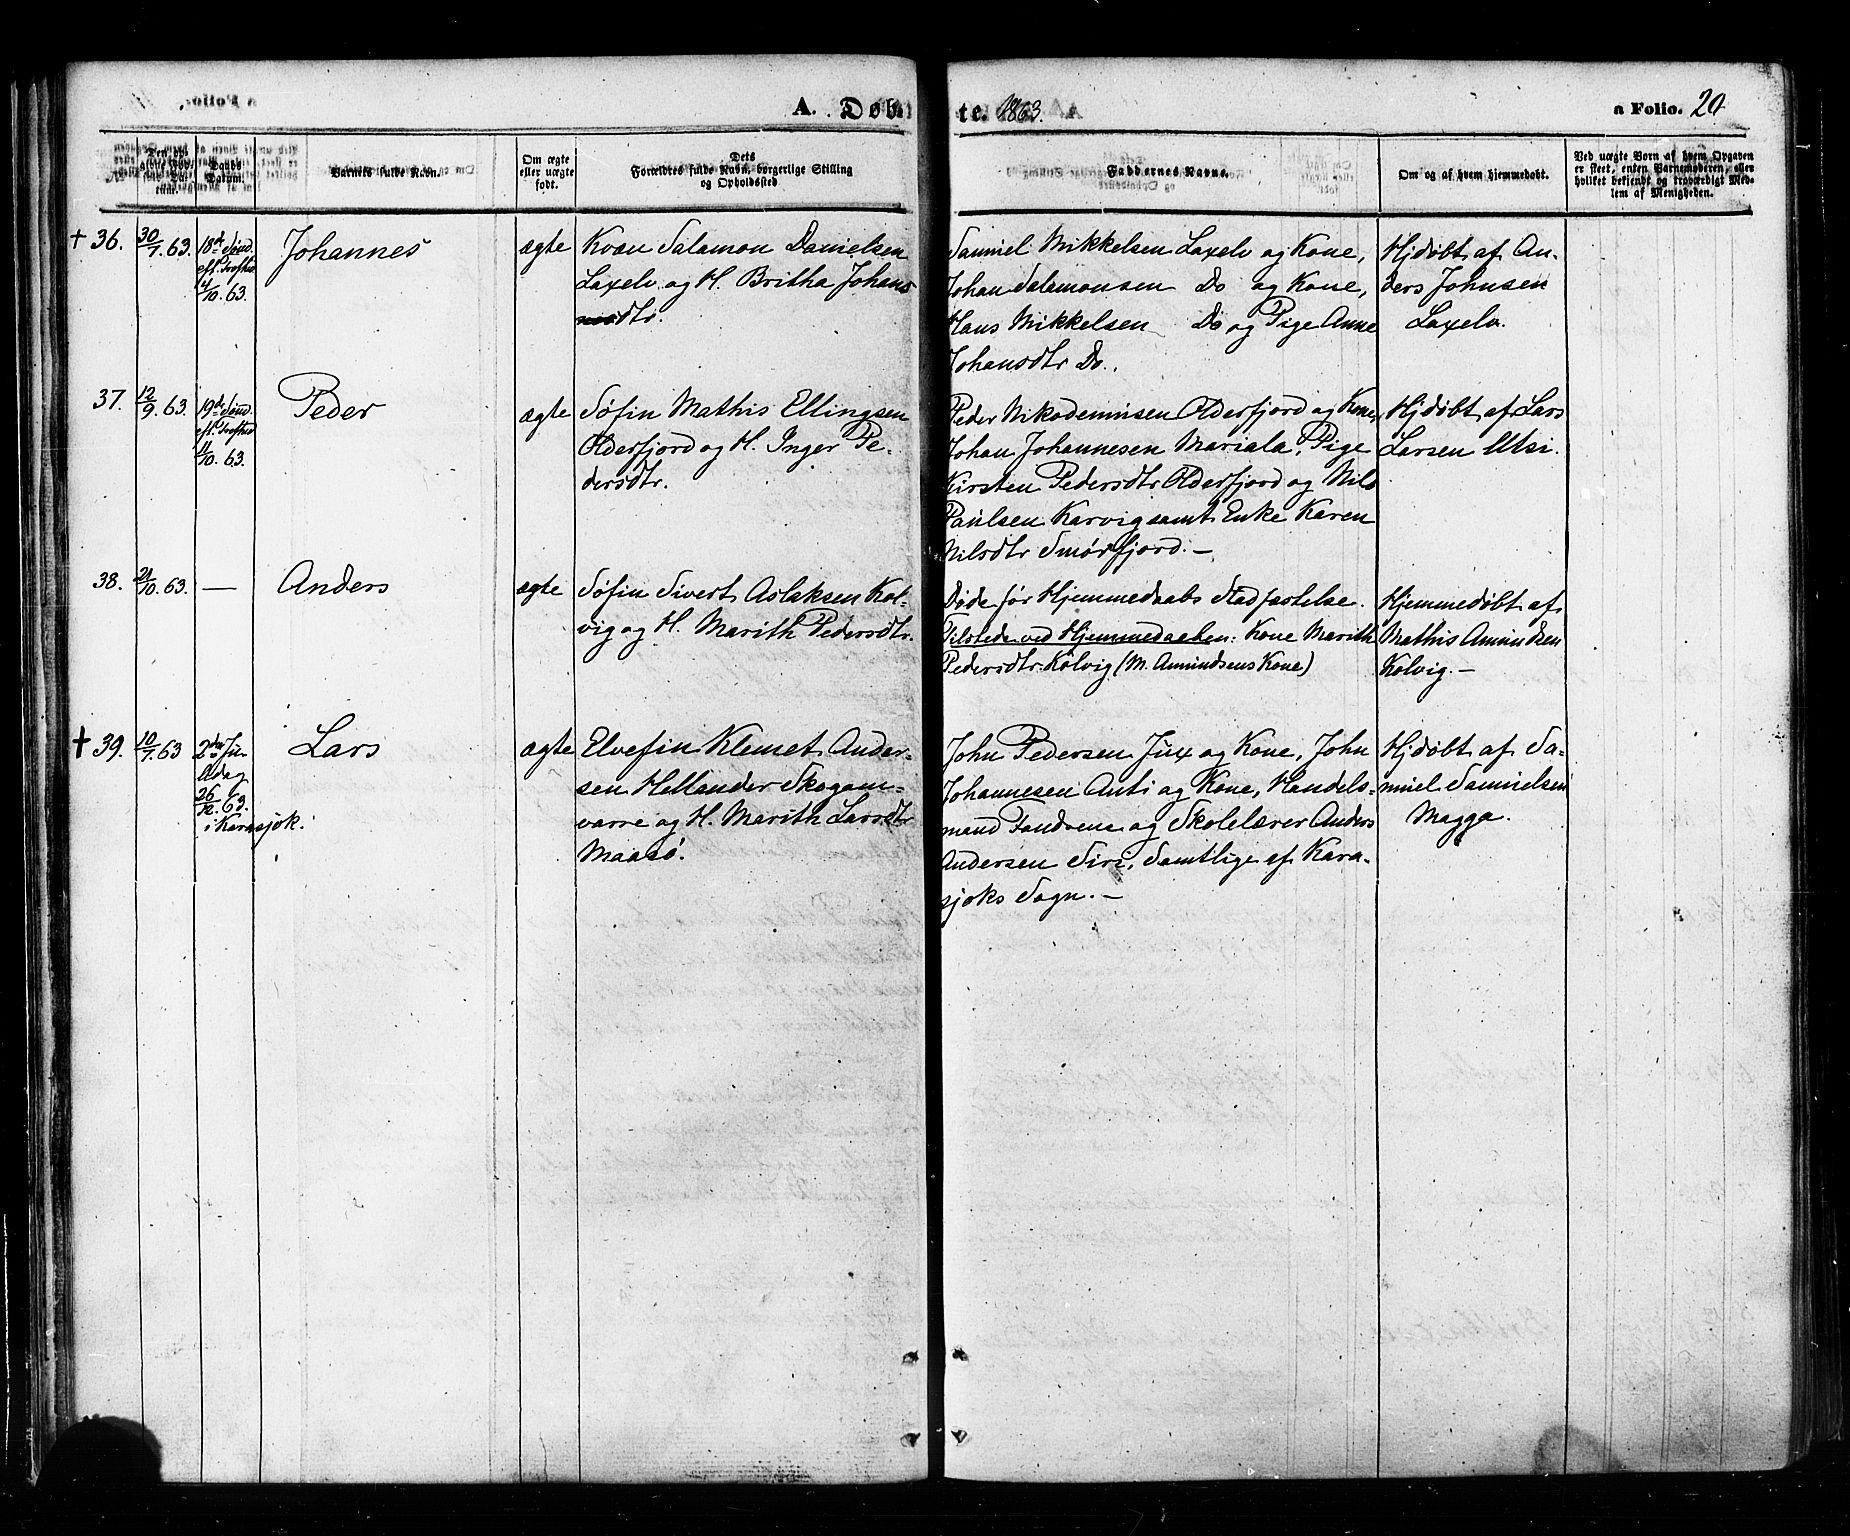 A. Døb-
te. 1863.
a Folio. 20
Barnets fulde Navn.
Om ægte
eller uægte
født.
Dets
Forældres fulde Navn, borgerlige Stilling
og Opholdssted.
Faddernes Navne.
Om og af hvem hjemmedøbt.
Ved uægte Børn af hvem Opgaven
er skeet, enten Barnemoderen, eller
hvilket bekjendt og troværdigt Med-
lem af Menigheden.
† 36. 30/7. 63. 18de Sønd. Johannes ægte Kvæn Salamon Danielsen
eft. Trefhed
4/10. 63.
Laxelv og H. Britha Johans
dtr.
Samuel Mikkelsen Laxelv og Kone,
Johan Salamonsen Do og Kone,
Hans Mikkelsen Do og Pige Anne
Johansdtr Do.
Hjdøbt af An-
ders Johnsen
Laxelv.
37. 12/9. 63. 19de Sønd. Peder ægte Søfin Mathis Ellingsen
eft. Trefhed
11/10. 63.
Olderfjord og H. Inger Pe-
dersdtr.
Peder Nikodemusen Olderfjord og Kone,
Johan Johannesen Mariala, Pige
Kirsten Pedersdtr Olderfjord og Nils
Paulsen Karvig samt Enke Karen
Nilsdtr Smørfjord. —
Hjdøbt af Lars
Larsen Utsi.
38. 21/10. 63. — Anders ægte Søfin Sivert Aslaksen Kol-
vig og H. Marith Pedersdtr.
Døde før Hjemmedaabs Stadfæstelse.
Tilstede ved Hjemmedaaben: Kone Marith
Pedersdtr. Kolvig (M. Amundsens Kone)
Hjemmedøbt af
Mathis Amundsen
Kolvig. —
† 39. 10/7. 63 2den Ju- Lars ægte Elvefin Klemet Ander-
ledag
26/12. 63.
i Karasjok.
sen Hellander Skogan-
varre og H. Marith Larsdtr
Maasø.
John Pedersen Jux og Kone, John
Johannesen Anti og Kone, Handels-
mand Fandrem og Skolelærer Anders
Andersen Siri, Samtlige af Kara-
sjoks Sogn. —
Hjdøbt af Sa-
muel Samuelsen
Magga.